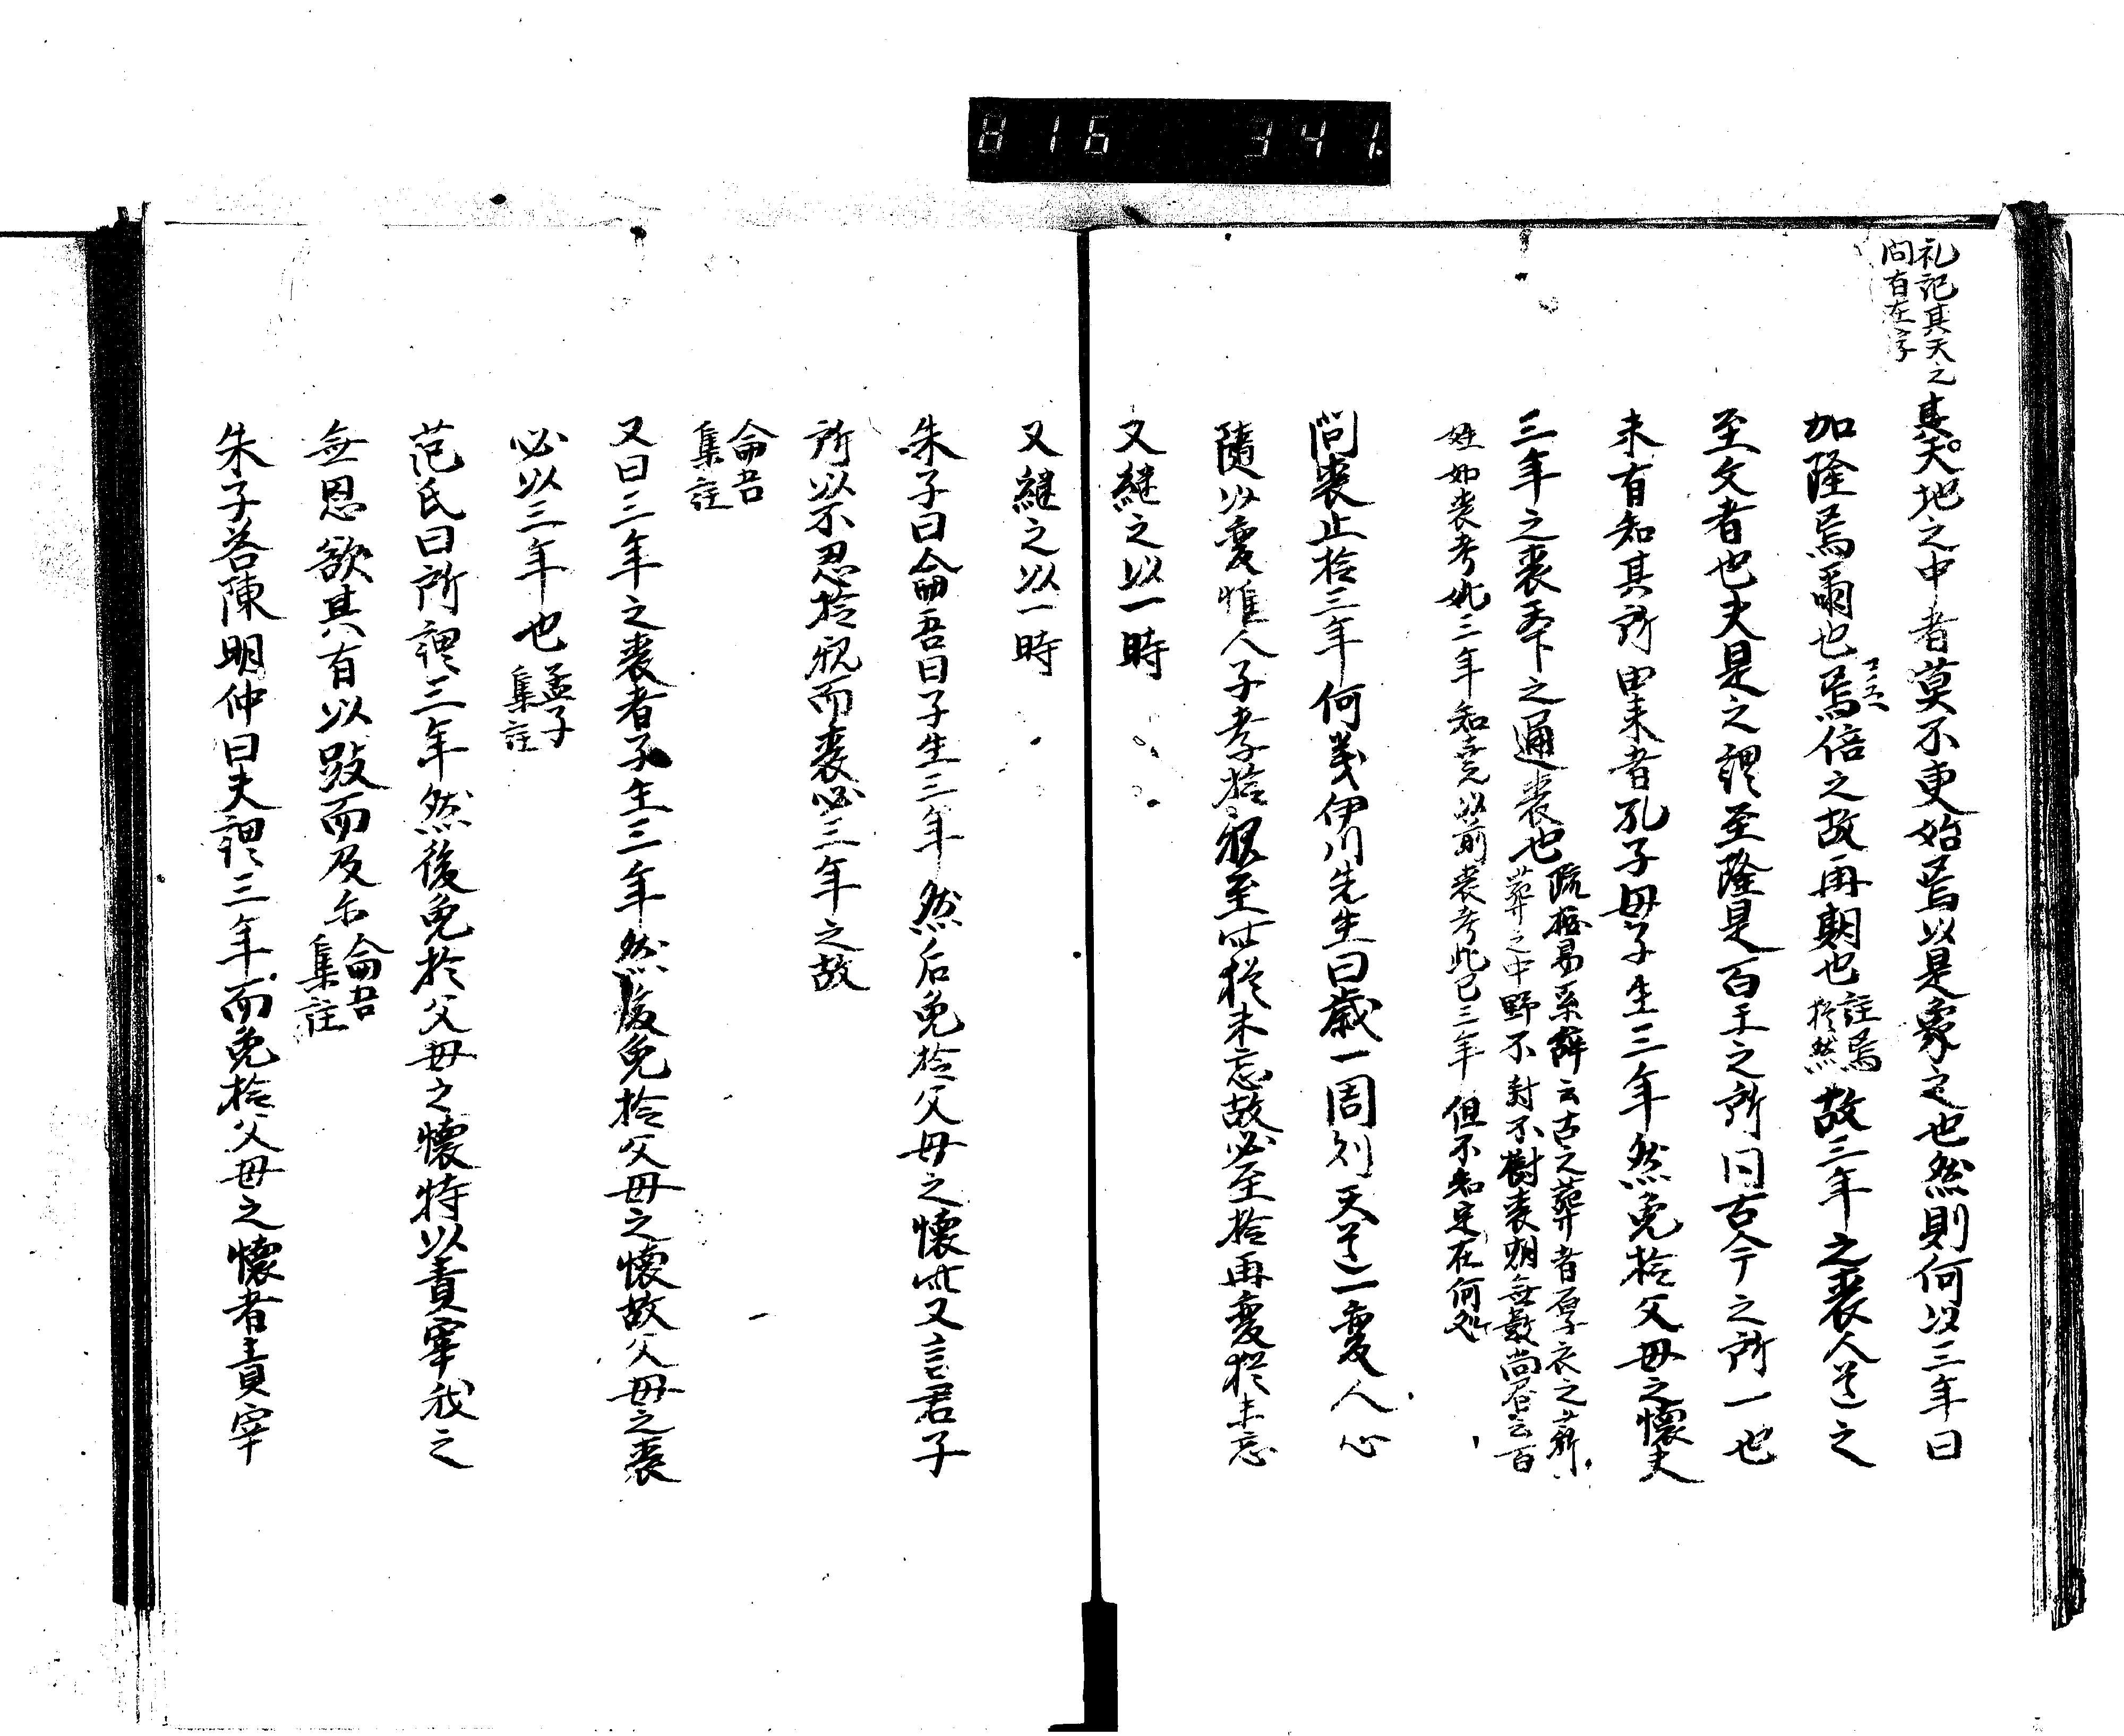 816 341
礼記其天之
間有在字
其天地之中者莫不更始焉以是象之也然則何以三年曰
加隆焉爾也焉倍之故再期也
註焉
猶然
故三年之喪人道之
至文者也夫是之謂至隆是百王之所同古今之所一也
未有知其所由来者孔子毋子生三年然免於父母之懐夫
三年之喪天下之通喪也
疏
易系辞云古之葬者厚衣之薪
葬之中野不封不樹喪期無数尚各云百
姓如喪考妣三年知堯以前喪考妣已三年但不知定在何処
問喪止於三年何義伊川先生曰歳一周則天道一変人心
随以変惟人子孝於親至此猶未忘故必至於再変猶未忘
又継之以一時
又継之以一時
朱子曰侖吾曰子生三年然后免於父母之懐此又言君子
所以不忍於親而喪必三年之故
侖吾
集註
又曰三年之喪者子生三年然後免於父母之懐故父母之喪
必以三年也
孟子
集註
范氏曰所謂三年然後免於父母之懐特以責宰我之
無恩欲其有以跂而及尓
侖吾
集註
朱子答陳明仲曰夫謂三年而免於父母之懐者責宰